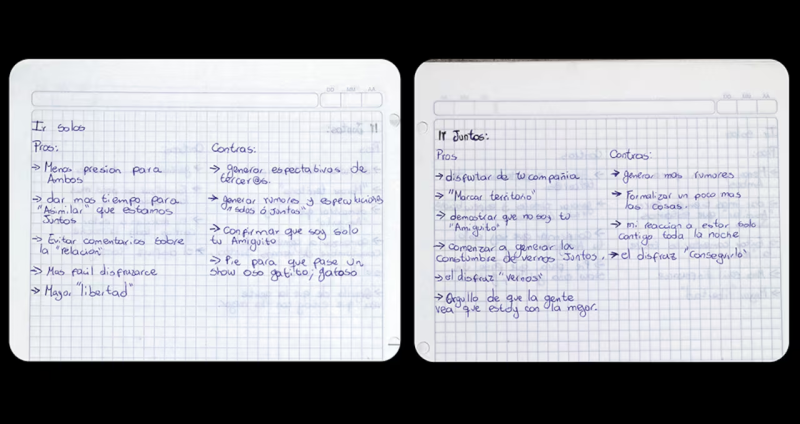 Ir solos
Pros:
→ Menos presion para
Ambos
→ dar mas tiempo para
"Asimilar" que estamos
Juntos
→ Evitar comentarios sobre
la "relacion"
→ Mas facil disfrazarce
→ Mayor "libertad"
Contras:
→ generar espectativas de
tercer@s.
→ generar rumores y especulaciones
→ Confirmar que soy solo
tu Amiguito
→ Pie para que pase un
show oso gatito, gatoso
Ir Juntos:
Pros
→ disfrutar de tu compañia
→ "Marcar territorio"
→ demostrar que no soy tu
"Amiguito"
→ comenzar a generar la
constumbre de vernos Juntos.
→ el disfraz "vernos"
→ Orgullo de que la gente
vea que estoy con la mejor.
Contras:
→ generar mas rumores
→ Formalizar un poco mas
las cosas.
→ mi reaccion a estar todo
contigo toda la noche
→ el disfraz "Conseguirlo"